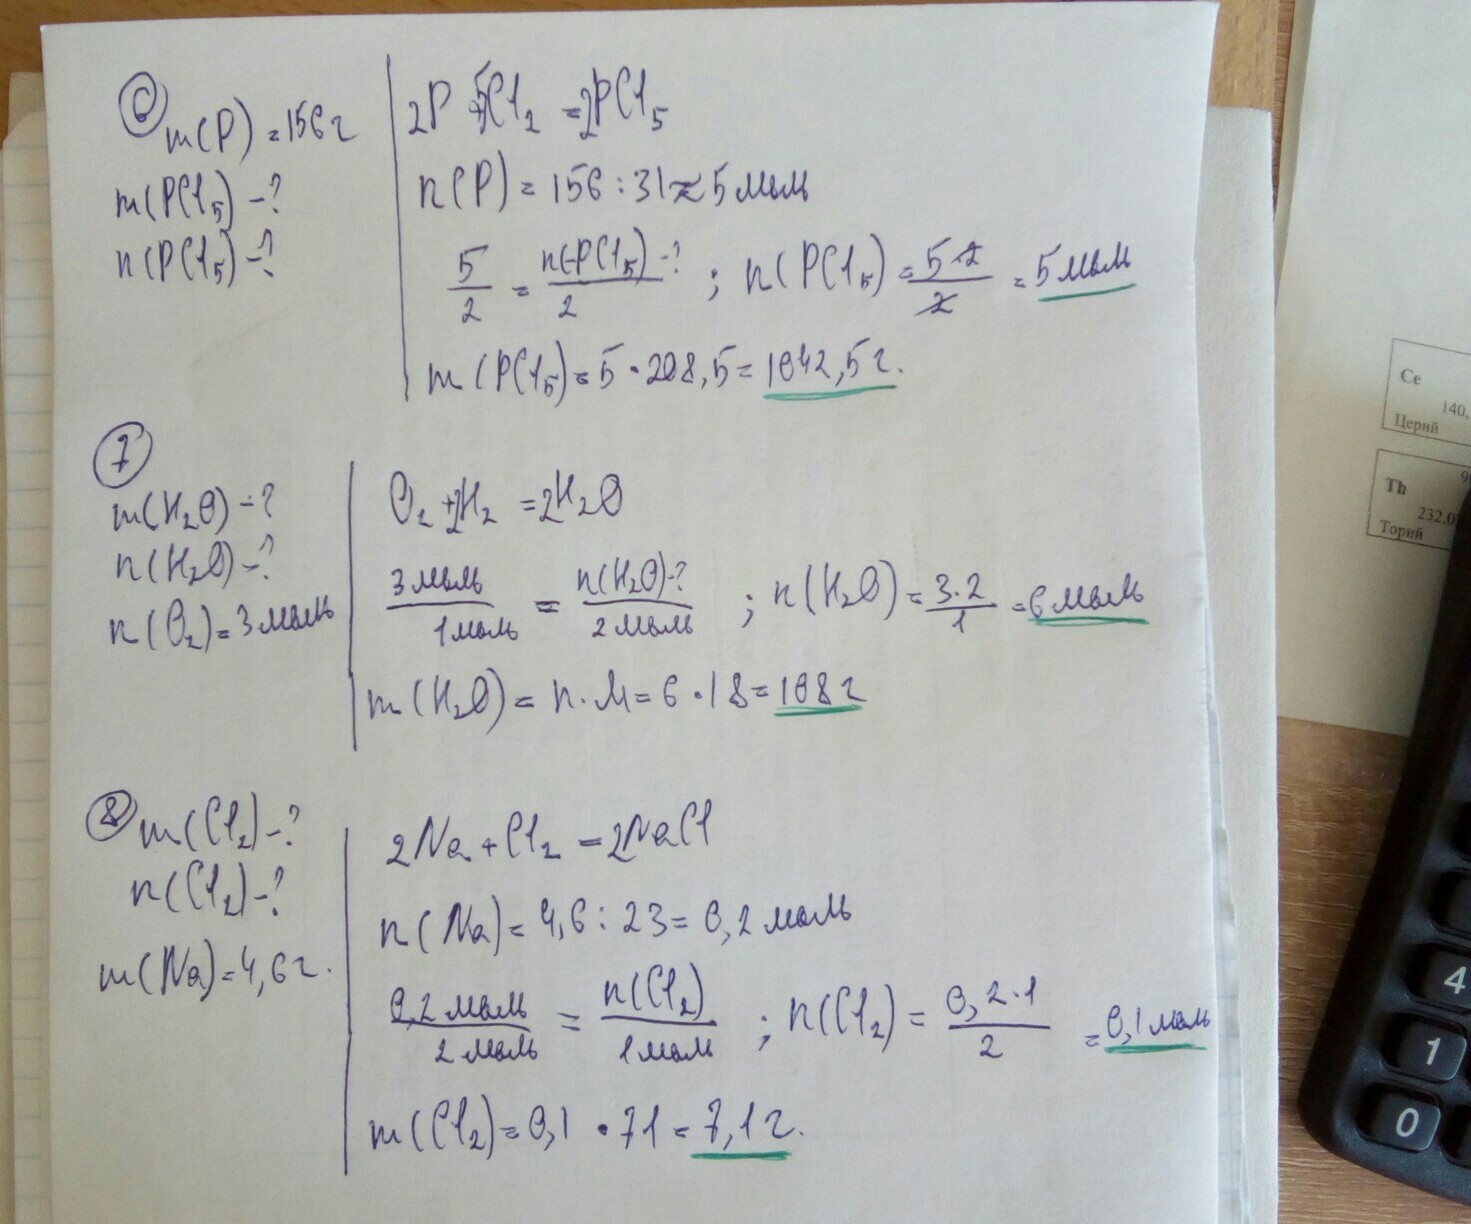 6
m(P) = 156 г
m(PCl₅) -?
n(PCl₅) -?
2P + 5Cl₂ = 2PCl₅
n(P) = 156 : 31 ≈ 5 моль
5/2 = n(PCl₅) -?/2 ; n(PCl₅) = 5·2/2 = 5 моль
m(PCl₅) = 5 · 208,5 = 1042,5 г.
7
m(H₂O) -?
n(H₂O) -?
n(O₂) = 3 моль
O₂ + 2H₂ = 2H₂O
3 моль/1 моль = n(H₂O)-?/2 моль ; n(H₂O) = 3·2/1 = 6 моль
m(H₂O) = n·M = 6 · 18 = 108 г
8
m(Cl₂) -?
n(Cl₂) -?
m(Na) = 4,6 г.
2Na + Cl₂ = 2NaCl
n(Na) = 4,6 : 23 = 0,2 моль
0,2 моль/2 моль = n(Cl₂)/1 моль ; n(Cl₂) = 0,2·1/2 = 0,1 моль
m(Cl₂) = 0,1 · 71 = 7,1 г.
Ce
140,
Церий
Th
232,0
Торий
4
1
0